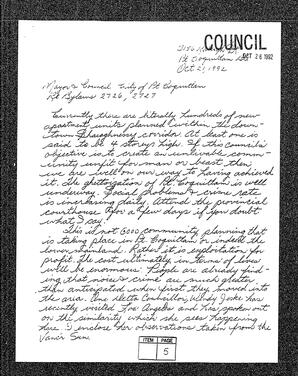 COUNCIL
OCT 26 1992
Pt Coquitlam
Oct 21, 1992
Mayor & Council City of Pt Coquitlam
Re Bylaws 2726, 2727
Currently there are literally hundreds of new
apartment units planned within the down-
town Shaughnessy corridor. At least one is
said to be 4 storeys high. If this council's
objective is to create an unlivable comm-
unity unfit for man or beast then
we are well on our way to having achieved
it. The ghettoization of Pt Coquitlam is well
underway. Social problems & crime rate
is increasing daily. Attend the provincial
courthouse for a few days if you doubt
what I say!
This is not GOOD community planning that
is taking place in Pt Coquitlam or indeed the
lower mainland. Rather it is exploitation for
profit. The cost ultimately in terms of lives
will be enormous. People are already find-
ing that noise & crime are much greater
than anticipated when first they moved into
the area. One Delta Councillor, Wendy
recently visited Los Angeles and has spoken out
on the similarity which she sees happening
here. I enclose her observations taken from the
Vancr Sun.
ITEM PAGE
5